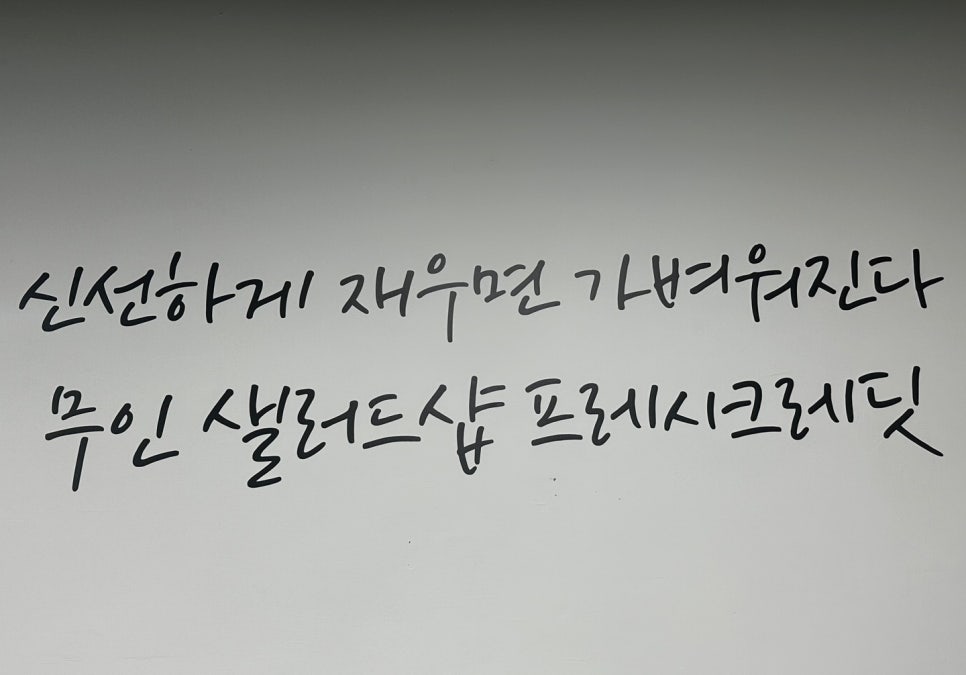 신선하게 재우면 가벼워진다
무인 샐러드샵 프레시크레딧